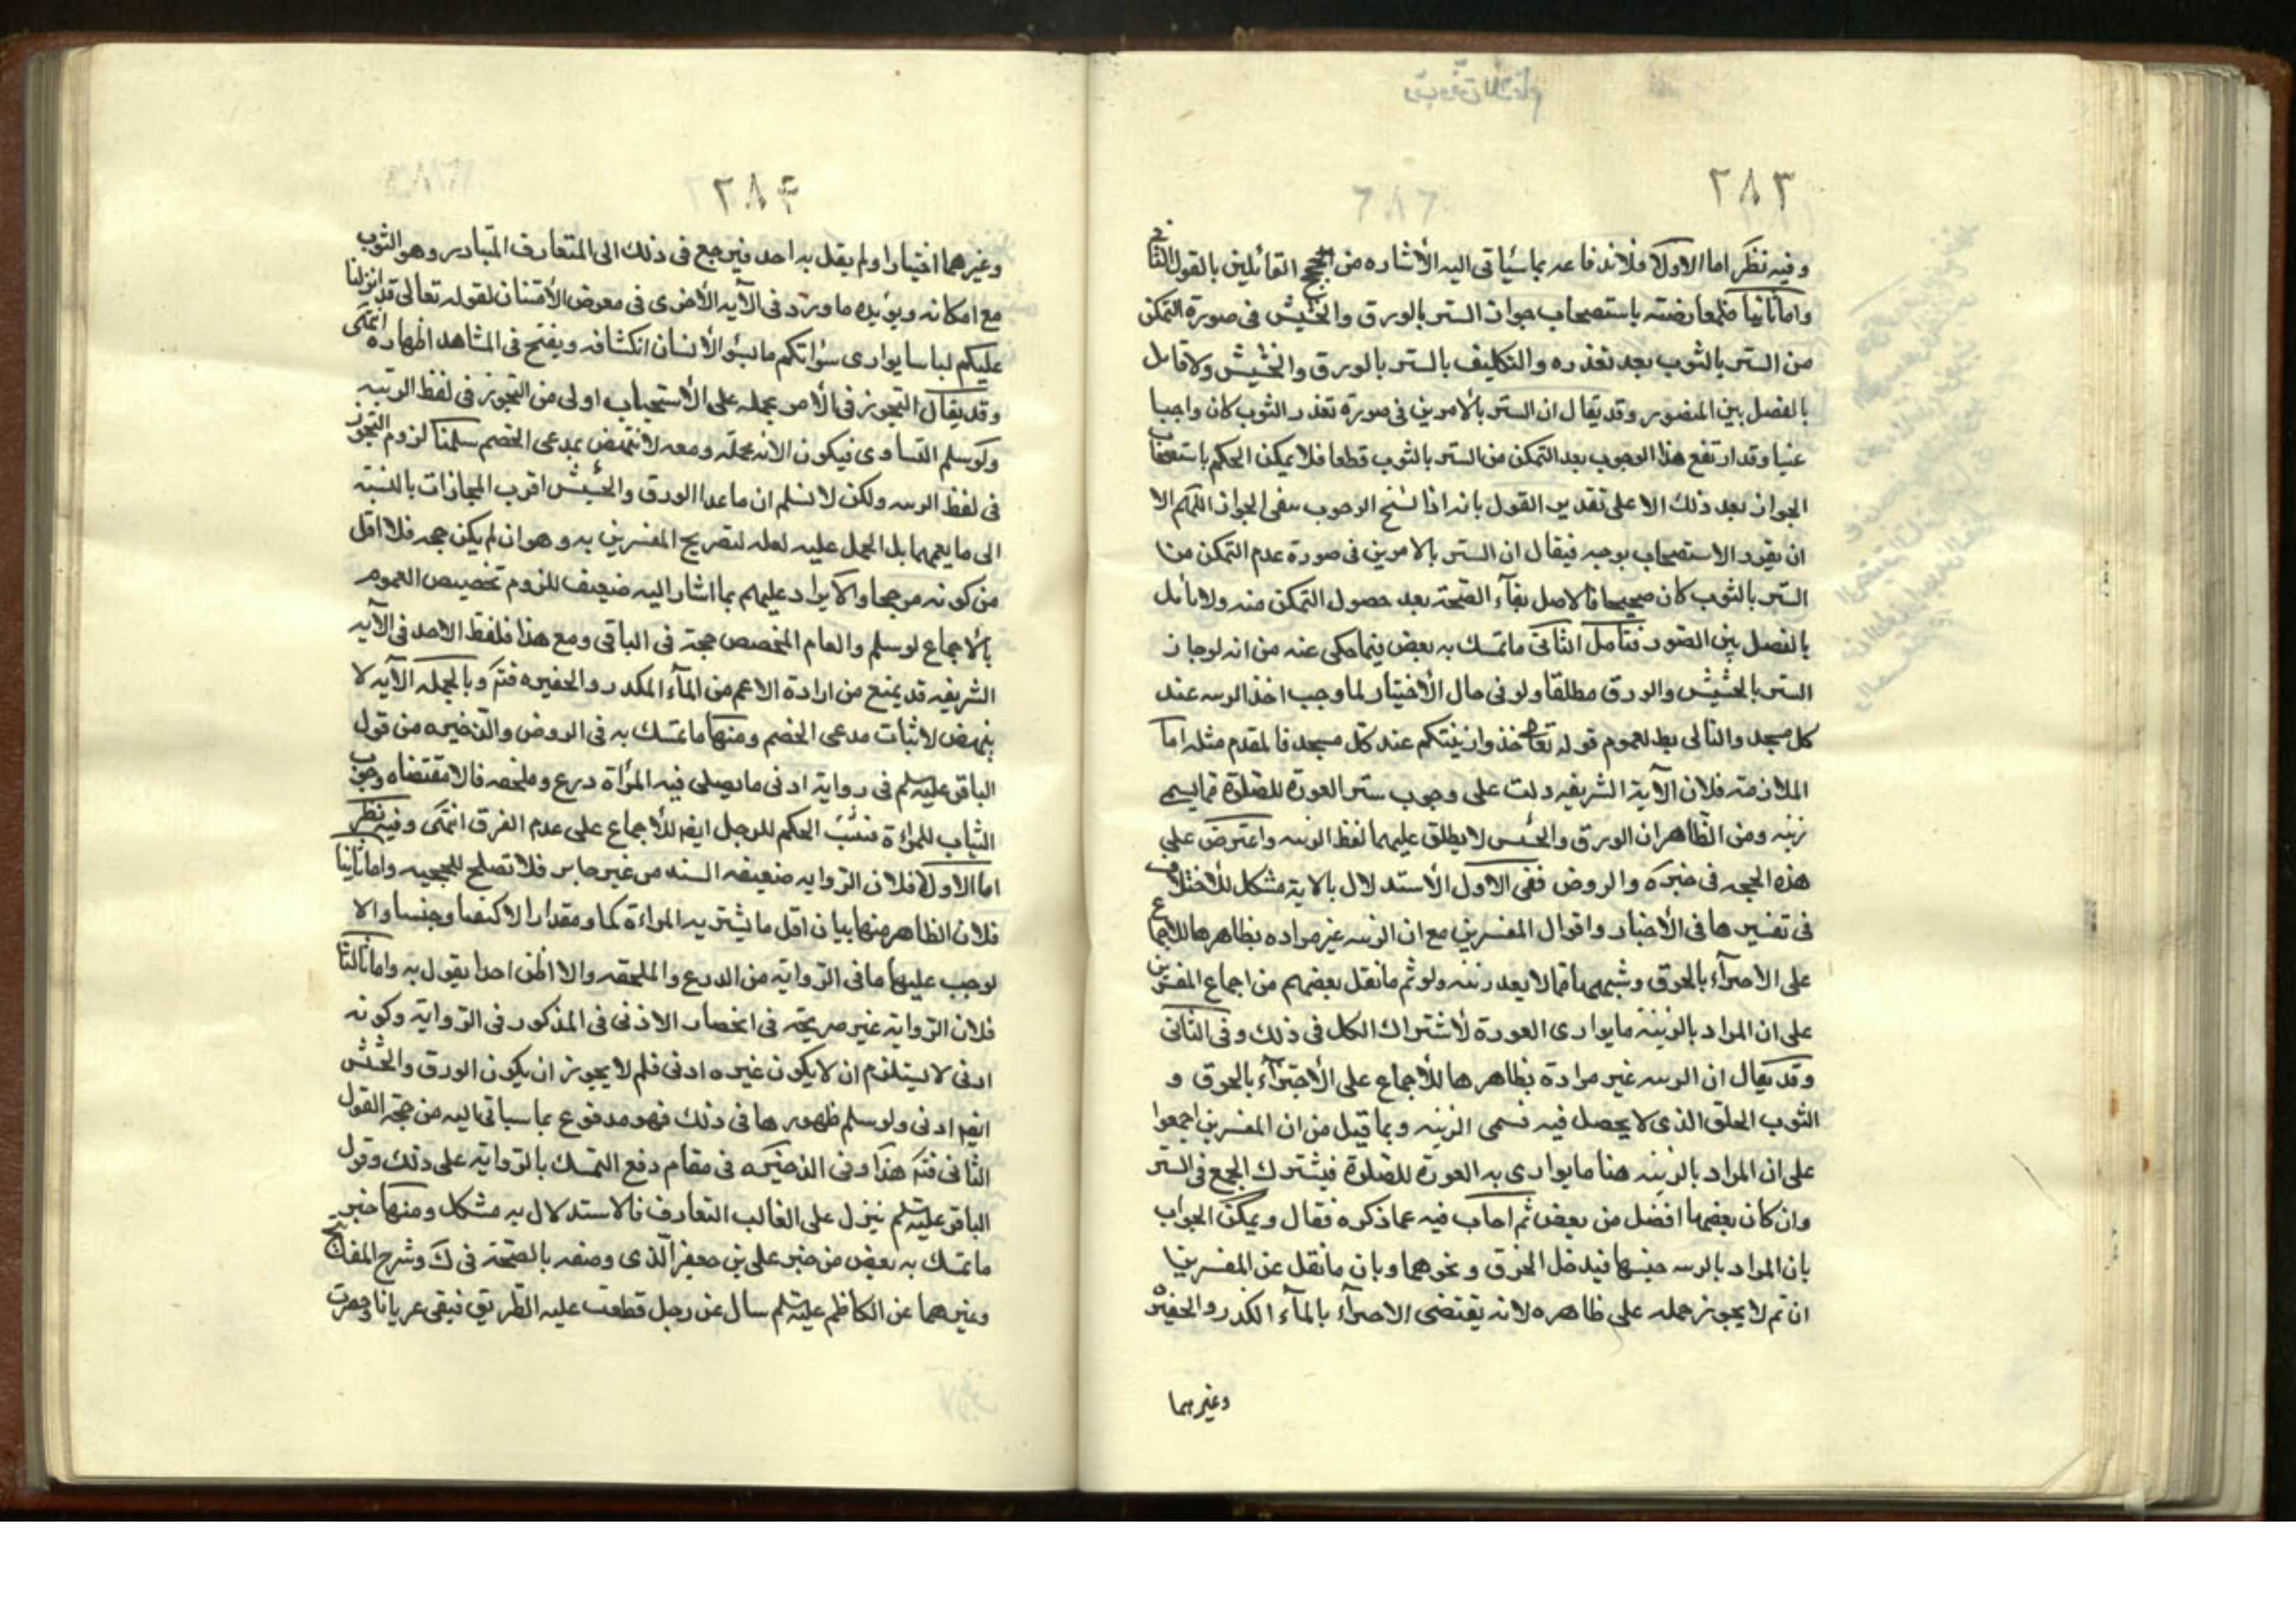 ٢٨٣
وفيه نظر اما الاولا فلاندفاعه بما سيأتى اليه الأشاره من حجج القائلين بالقول الثانى
واما ثانيا فلمعارضته باستصحاب جواز الستر بالورق والحشيش فى صورة التمكن
من الستر بالثوب بعد تعذره والتكليف بالستر بالورق والحشيش ولا قايل
بالفصل بين الصور وقد يقال ان الستر بالأمرين فى صورة تعذر الثوب كان واجبا
عينيا وقد ارتفع هذا الوجوب بعد التمكن من الستر بالثوب قطعا فلا يمكن الحكم باستصحاب
الجواز بعد ذلك الا على تقدير القول بانه اذا نسخ الوجوب يبقى الجواز اللهم الا
ان يقرر الاستصحاب بوجه فيقال ان الستر بالامرين فى صورة عدم التمكن من
الستر بالثوب كان صحيحا فالاصل بقآء الصحة بعد حصول التمكن منه ولا قائل
بالفصل بين الصور فتأمل الثانى ما تمسك به بعض فيما حكى عنه من انه لو جاز
الستر بالحشيش والورق مطلقا ولو فى حال الأختيار لما وجب اخذ الزينه عند
كل مسجد والتالى بط لعموم قوله تعالى خذوا زينتكم عند كل مسجد فالمقدم مثله اما
الملازمة فلان الآية الشريفه دلت على وجوب ستر العورة للصلوة بما يسمى
زينه ومن الظاهر ان الورق والحشيش لا يطلق عليهما لفظ الزينه واعترض على
هذه الحجه فى خيره والروض ففى الاول الأستدلال بالاية مشكل للأختلاف
فى تفسيرها فى الأخبار واقوال المفسرين مع ان الزينه غير مراده بظاهرها للاجماع
على الاجتزآء بالخرق وشبهها مما لا يعد زينه ولو ثم ما نقل بعضهم من اجماع المفسرين
على ان المراد بالزينة ما يوارى العورة لأشتراك الكل فى ذلك وفى الثانى
وقد يقال ان الزينه غير مرادة بظاهرها للأجماع على الأجتزآء بالخرق و
الثوب الخلق الذى لا يحصل فيه مسمى الزينه وبما قيل من ان المفسرين اجمعوا
على ان المراد بالزينه هنا ما يوارى به العورة للصلوة فيشترك الجمع فى الستر
وان كان بعضها افضل من بعض ثم اجاب فيه عما ذكره فقال ويمكن الجواب
بان المراد بالزينه جنسها فيدخل الخرق ونحوهما وبان ما نقل عن المفسرين
ان تم لا يجوز حمله على ظاهره لانه يقتضى الاجتزآء بالمآء الكدر والحفيره
وغيرهما
٢٨٤
وغيرهما اختيارا ولم يقل به احد فيرجع فى ذلك الى المتعارف المتبادر وهو الثوب
مع امكانه ويؤيده ما ورد فى الآيه الأخرى فى معرض الأمتنان لقوله تعالى قد انزلنا
عليكم لباسا يوارى سؤاتكم ما يسؤ الأنسان انكشافه ويقبح فى المشاهد اظهاره انتهى
وقد يقال التجوز فى الأمر بحمله على الأستحباب اولى من التجوز فى لفظ الزينه
ولو سلم التساوى فيكون الآيه مجمله ومعه لا تنهض بمدعى الخصم سلمنا لزوم التجوز
فى لفظ الزينه ولكن لا نسلم ان ما عدا الورق والحشيش اقرب المجازات بالنسبة
الى ما يعمهما بل الحمل عليه لعله لتصريح المفسرين به وهو ان لم يكن حجه فلا اقل
من كونه مرجحا والأيراد عليهم بما اشار اليه ضعيف للزوم تخصيص العموم
بالأجماع لو سلم والعام المخصص حجة فى الباقى ومع هذا فلفظ الاخذ فى الآيه
الشريفه قد يمنع من ارادة الاعم من المآء المكدر والحفيره فتم وبالجمله الآيه لا
ينهض لاثبات مدعى الخصم ومنها ما تمسك به فى الروض والذخيره من قول
الباقر عليه السلم فى رواية ادنى ما يصلى فيه المرأة درع وملحفه فالامقتضاه وجوب
الثياب للمرأة فيثبت الحكم للرجل ايضا للأجماع على عدم الفرق انتهى وفيه نظر
اما الاولا فلان الروايه ضعيفه السند من غير جابر فلا تصلح للحجيه واما ثانيا
فلان الظاهر منها بيان اقل ما يشتر به المراءة كما ومقدارا لا كنهما وجنسا والا
لوجب عليها ما فى الرواية من الدرع والملحفه ولا اظن احدا يقول به واما ثالثا
فلان الرواية غير صريحة فى انحصار الادنى فى المذكور فى الرواية وكونه
ادنى لا يستلزم ان لا يكون غيره ادنى فلم لا يجوز ان يكون الورق والحشيش
ايضا ادنى ولو سلم ظهورها فى ذلك فهو مدفوع بما سياتى اليه من حجة القول
الثانى فتم هذا وفى الذخيره فى مقام دفع التمسك بالرواية على ذلك وقول
الباقر عليه السلم ينزل على الغالب المتعارف فالاستدلال به مشكل ومنها خبر
ما تمسك به بعض من خبر على بن جعفر الذى وصفه بالصحة فى ك وشرح المفاتيح
وغيرهما عن الكاظم عليه السلم سال عن رجل قطعت عليه الطريق فبقى عريانا وحضرت